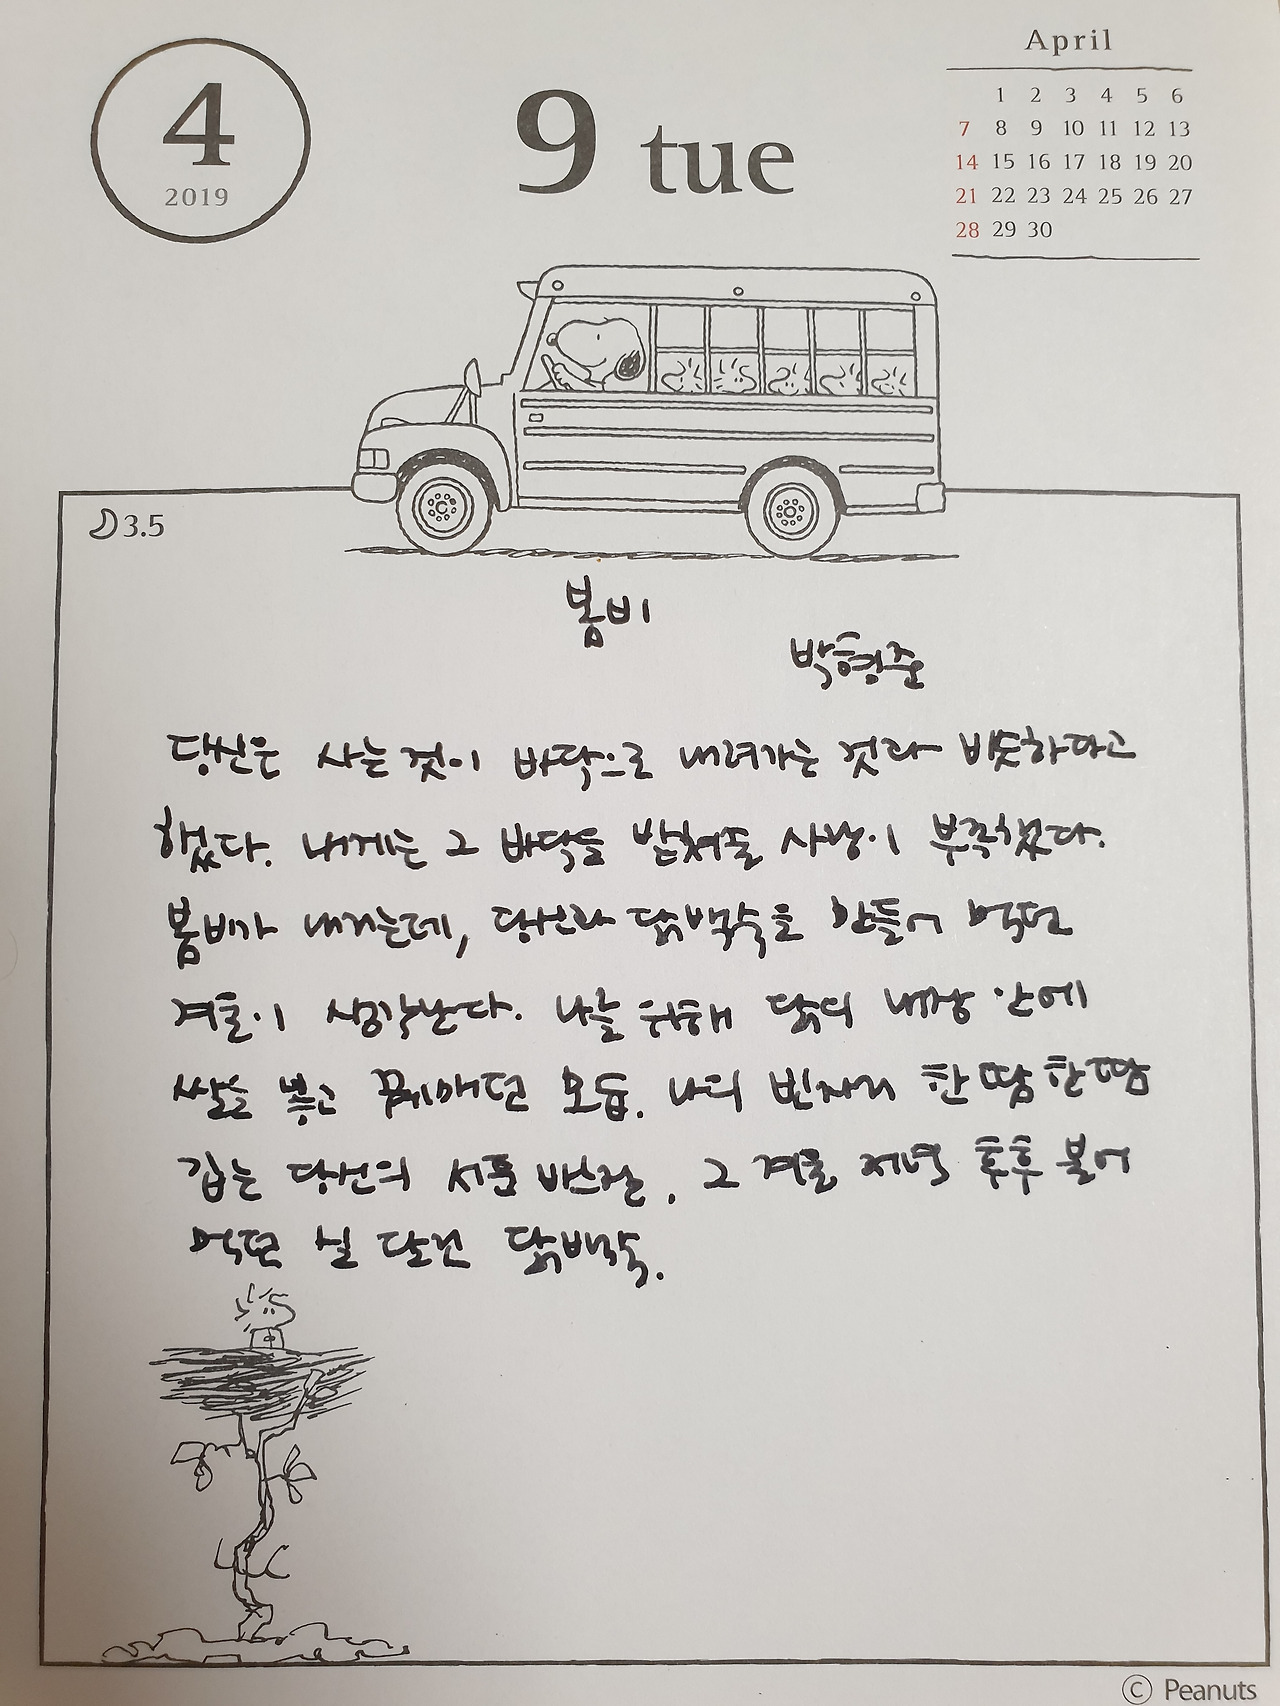 4
2019
9 tue
April
1 2 3 4 5 6
7 8 9 10 11 12 13
14 15 16 17 18 19 20
21 22 23 24 25 26 27
28 29 30
3.5
봄비
박형준
당신은 사는 것이 바닥으로 내려가는 것과 비슷하다고
했다. 내게는 그 바닥을 받쳐줄 사랑이 부족했다.
봄비가 내리는데, 당신과 닭백숙을 만들어 먹던
겨울이 생각난다. 나를 위해 닭의 내장 안에
쌀을 넣고 꿰매던 모습. 나의 빈자리 한 땀 한땀
깁는 당신의 서툰 바느질. 그 겨울 저녁 후후 불어
먹던 실 달린 닭백숙.
© Peanuts